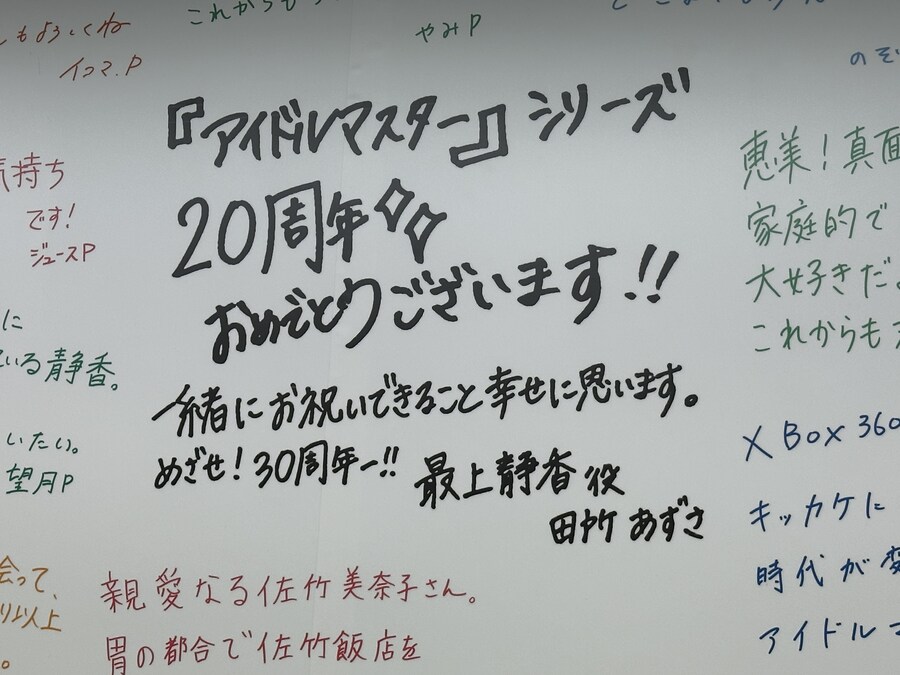 もよろしくね
イコマ.P
これからも
やみP
のぞ
気持ち
です!
ジュースP
に
いる静香。
いたい。
望月P
『アイドルマスター』シリーズ
20周年
おめでとうございます!!
一緒にお祝いできること幸せに思います。
めざせ!30周年ー!!
最上静香役
田所あずさ
恵美!真面
家庭的で
大好きだ
これからも
XBox360
キッカケに
時代が変
アイドルマ
会って、
以上
。
親愛なる佐竹美奈子さん。
胃の都合で佐竹飯店を